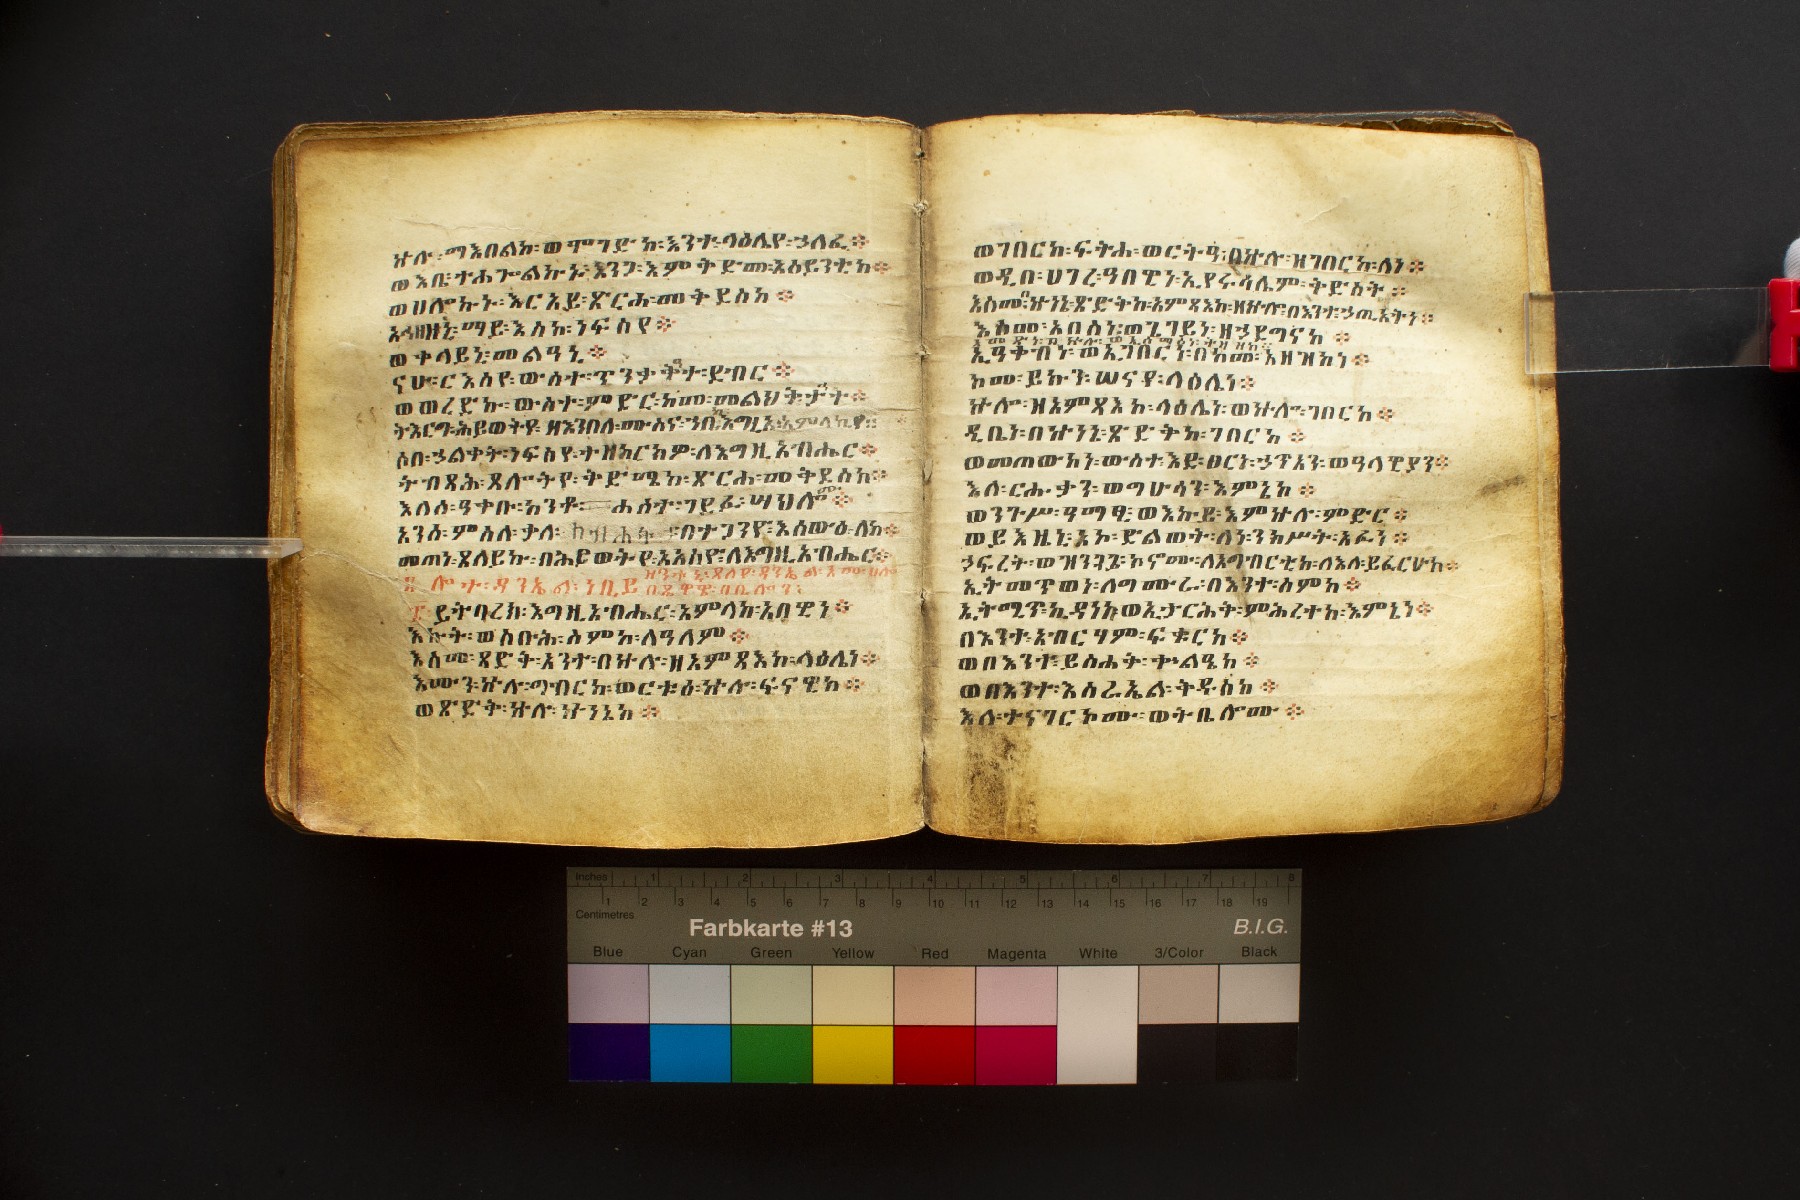 ኵሉ፡ማእበልከ፡ወሞገድከ፡እንተ፡ላዕሌየ፡ኃለፈ፨
ወእቤ፡ተሐጐልኩኑ፡እንጋ፡እምቅድመ፡አዕይንቲከ፨
ወሀሎኩኑ፡እርአይ፡ጽርሐ፡መቅደስከ፨
ማይ፡እስከ፡ነፍስየ፨
ወቀላይኒ፡መልዓኒ፨
ርእስየ፡ውስተ፡ጥንቃቅተ፡ደብር፨
ወወረድኩ፡ውስተ፡ምድር፡ከመ፡መልህቅት፨
ትእርግ፡ሕይወትየ፡ዘእንበለ፡ሙስና፡ኀበ፡እግዚአ፡አምላኪየ፨
ሶበ፡ኃልቀት፡ነፍስየ፡ተዘከርክዎ፡ለእግዚአብሔር፨
ትብጻሕ፡ጸሎትየ፡ቅድሜከ፡ጽርሐ፡መቅደስከ፨
እለሰ፡ዓቀቡ፡ከንቶ፡ሐሰተ፡ገደፉ፡ሣህሎሙ፨
አንሰ፡ምስለ፡ቃለ፡በተጋንዮ፡እሰውዕ፡ለከ፨
መጠነ፡ጸለይኩ፡በሕይወትየ፡አአስየ፡ለእግዚአብሔር፨
ጸሎተ፡ዳንኤል፡ነቢይ
ይትባረክ፡እግዚአብሔር፡አምላከ፡አበዊነ፨
እኩት፡ወስቡሕ፡ስምከ፡ለዓለም፨
እስመ፡ጻድቅ፡አንተ፡በኵሉ፡ዘአምጻእከ፡ላዕሌነ፨
እሙን፡ኵሉ፡ግብርከ፡ወርቱዕ፡ኵሉ፡ፍናዊከ፨
ወጽድቅ፡ኵሉ፡ኵነኔከ፨
ወገበርከ፡ፍትሐ፡ወርትዓ፡በኵሉ፡ዝገበርከ፡ለነ፨
ወዲበ፡ሀገረ፡ዓበዊነ፡ኢየሩሳሌም፡ቅድስት፨
እስመ፡ኵነኔ፡ጽድቅከ፡አምጻእከ፡ዘኵሎ፡በእንተ፡ኃጢአትነ፨
እስመ፡አበስነ፡ወጌገይነ፡ዘኃደግናከ፨
ኢዓቀብነ፡ወኢገበርነ፡በከመ፡አዘዝከነ፨
ከመ፡ይኩን፡ሠናየ፡ላዕሌነ፨
ኵሎ፡ዘአምጻእከ፡ላዕሌነ፡ወኵሎ፡ገበርከ፨
ዲቤነ፡በኵነኔ፡ጽድቅ፡ገበርከ፨
ወመጠውከነ፡ውስተ፡እደ፡ፀርነ፡ኃጥአን፡ወዓላዊያን፨
እለ፡ርሑቃን፡ወግሁሳን፡እምኔከ፨
ወንጉሥ፡ዓማፂ፡ወእኩይ፡እምኵሉ፡ምድር፨
ወይእዜኒ፡አኮ፡ድልወት፡ለነ፡ንክሥት፡አፈነ፨
ኃፍረት፡ወዝንጓጔ፡ኮኖሙ፡ለአግብርቲከ፡ለእለ፡ይፈርሁከ፨
ኢትመጥወነ፡ለግሙራ፡በእንተ፡ስምከ፨
ኢትሚጥ፡ኪዳነከ፡ወኢታርሕቅ፡ምሕረተከ፡እምኔነ፨
በእንተ፡አብርሃም፡ፍቁርከ፨
ወበእንተ፡ይስሐቅ፡ቍልዔከ፨
ወበእንተ፡እስራኤል፡ቅዱስከ፨
እለ፡ተናገርኮሙ፡ወትቤሎሙ፨
Inches 1 2 3 4 5 6 7 8
1 2 3 4 5 6 7 8 9 10 11 12 13 14 15 16 17 18 19
Centimetres
Farbkarte #13 B.I.G.
Blue Cyan Green Yellow Red Magenta White 3/Color Black